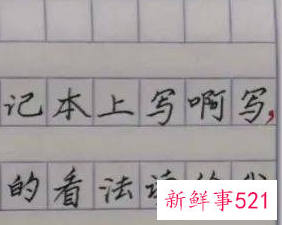 记本上写啊写,
的看法
新鲜事521